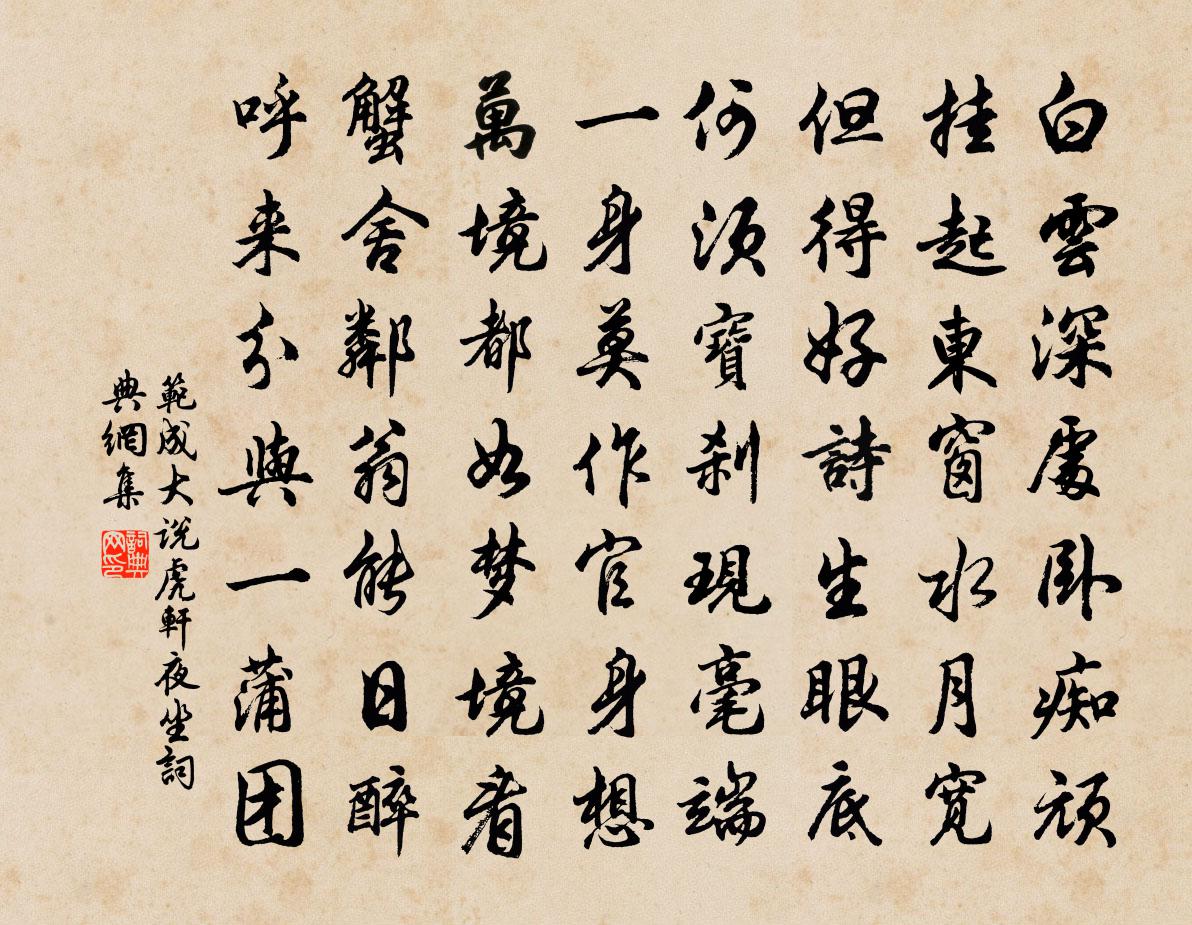 白雲深處卧痴頑
挂起東窗水月宽
但得好詩生眼底
何須寶刹現毫端
一身莫作官身想
萬境都如梦境看
蟹舍鄰翁能日醉
呼来分與一蒲团
範成大说虎軒夜坐詞
典網集
詞典网印